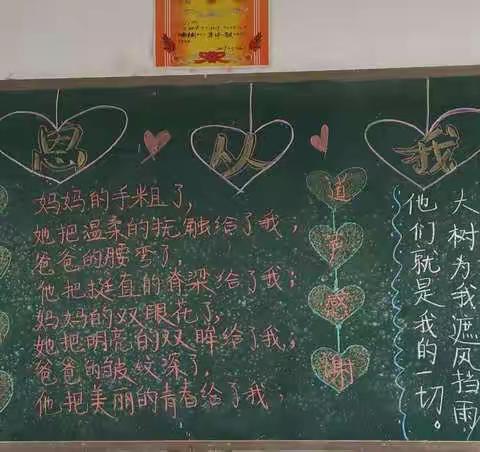 恩从我
妈妈的手粗了,
她把温柔的抚触给了我;
爸爸的腰弯了,
他把挺直的脊梁给了我;
妈妈的双眼花了,
她把明亮的双眸给了我,
爸爸的皱纹深了,
他把美丽的青春给了我;
道声感谢
大树为我遮风挡雨
他们就是我的一切。